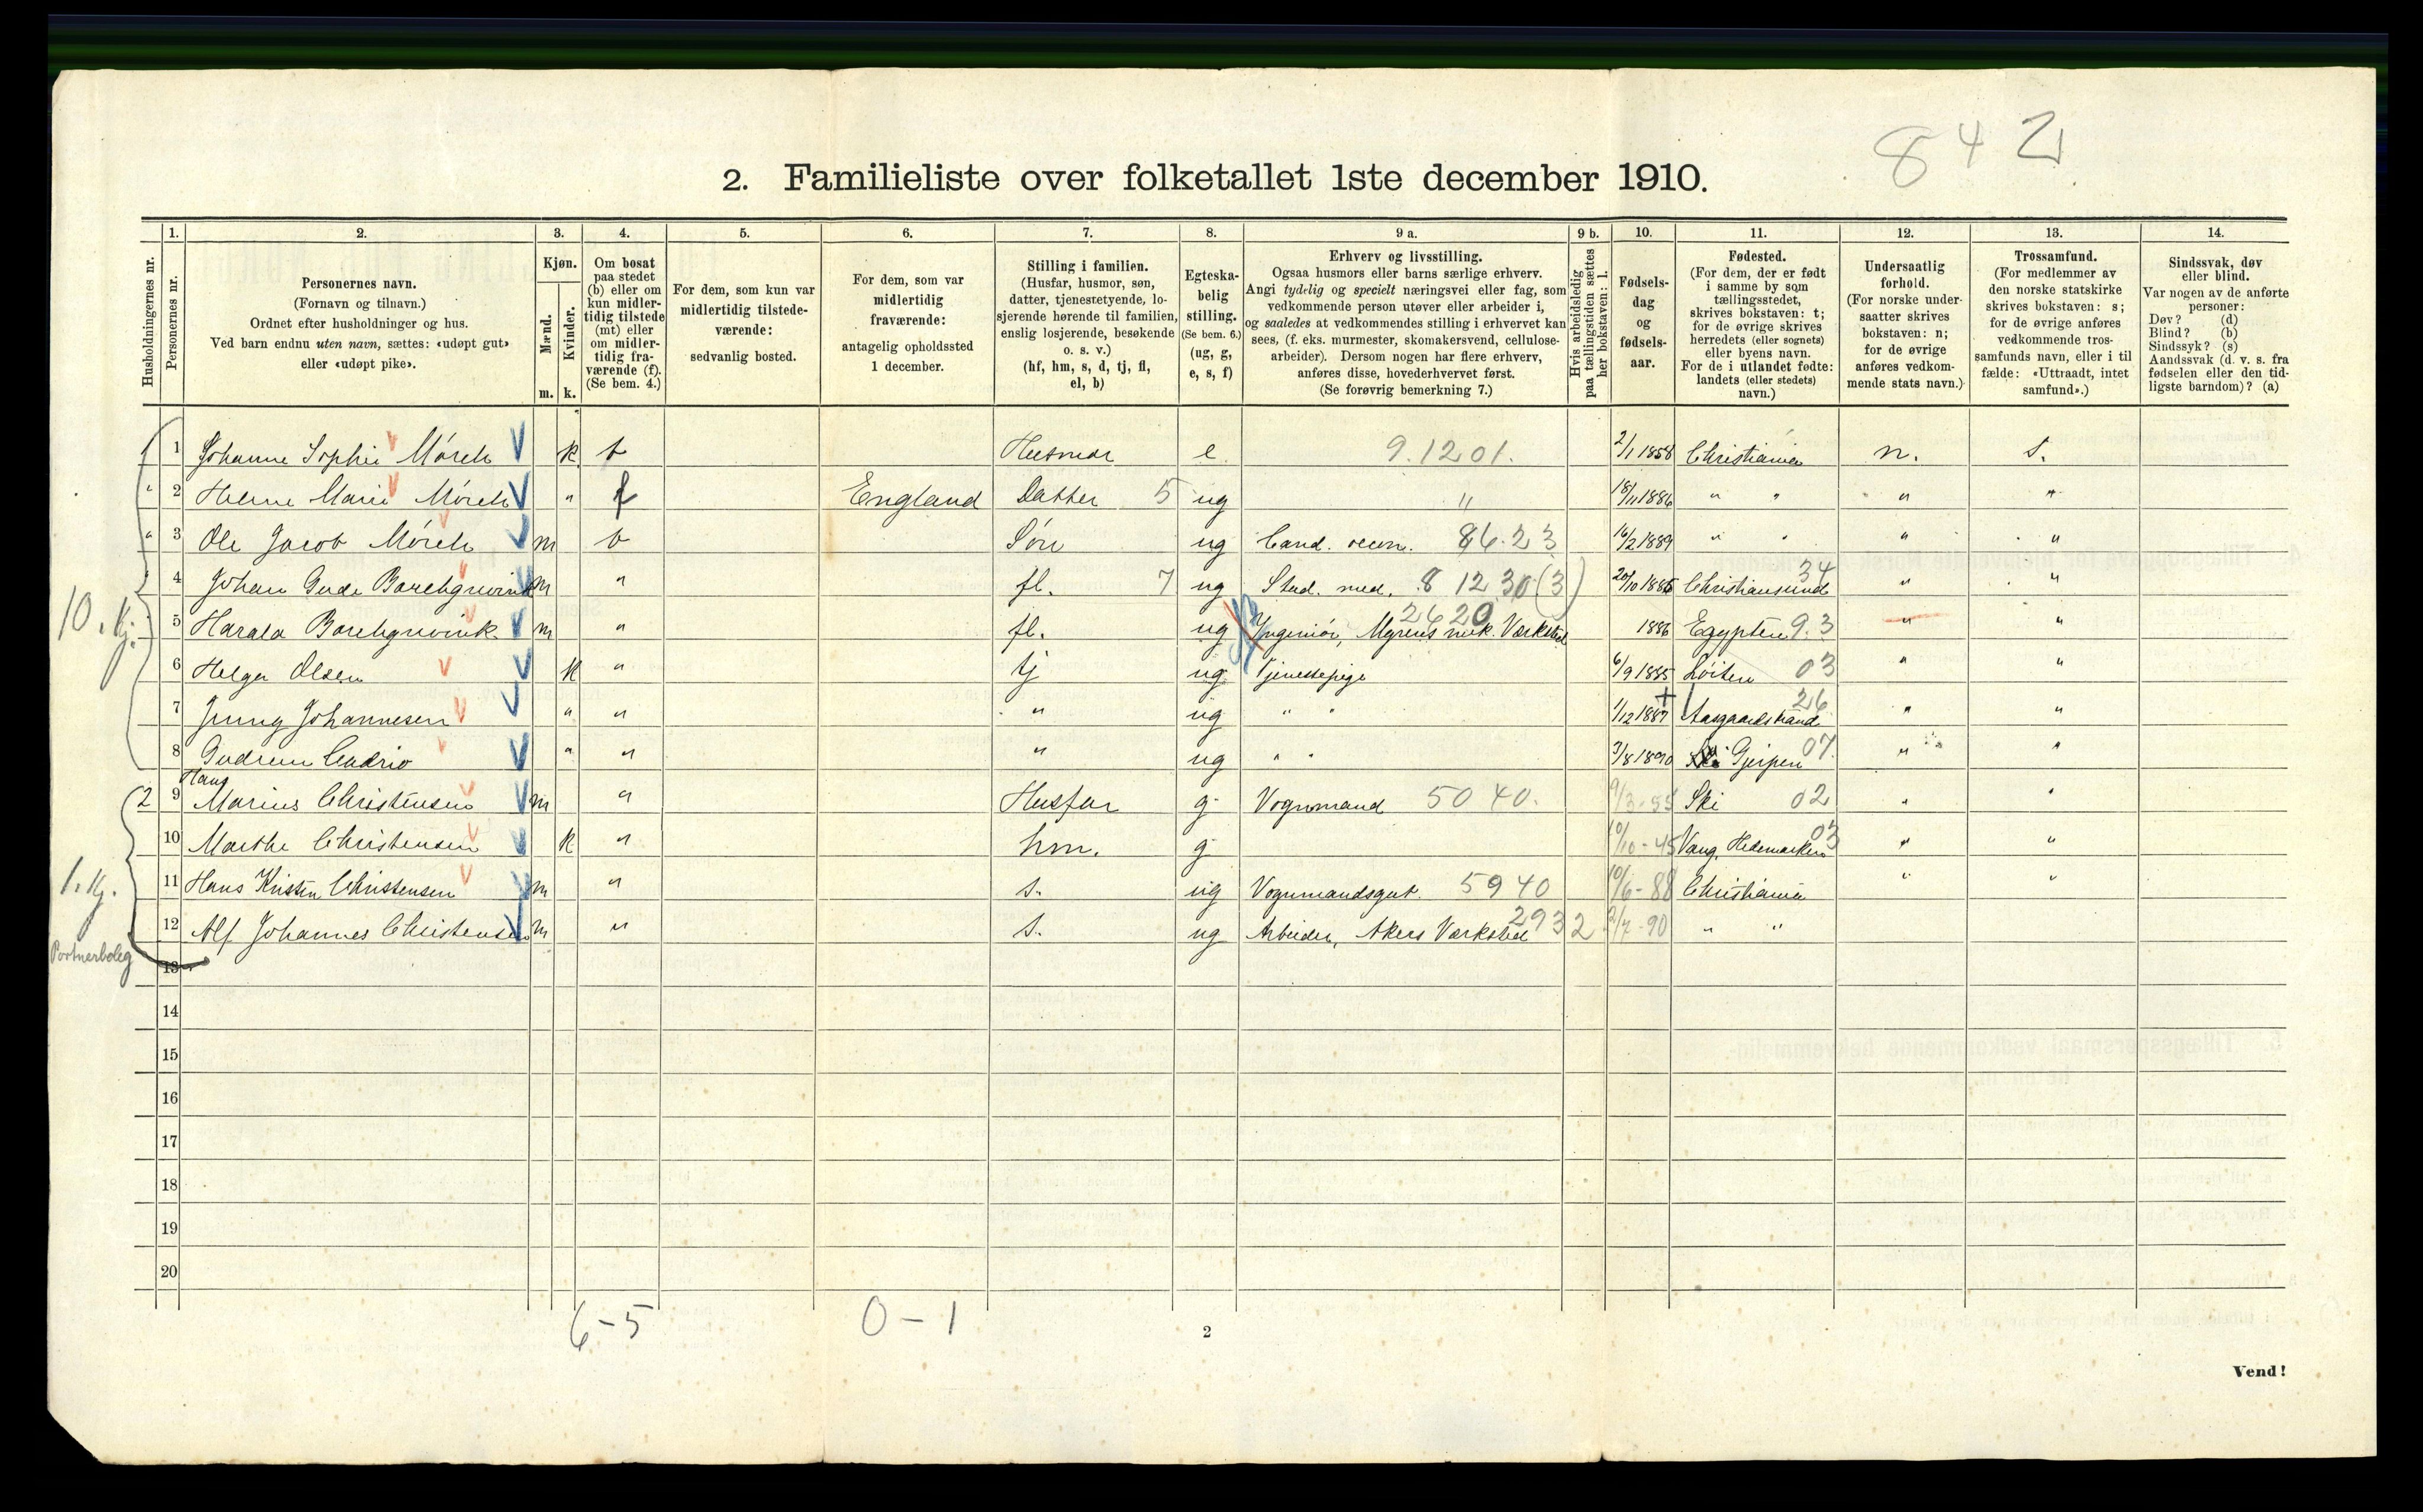 842
2. Familieliste over folketallet 1ste december 1910.
1. 2. 3. 4. 5. 6. 7. 8. 9 a. 9 b. 10. 11. 12. 13. 14.
Husholdningernes nr.
Personernes nr.
Personernes navn.
(Fornavn og tilnavn.)
Ordnet efter husholdninger og hus.
Ved barn endnu uten navn, sættes: «udøpt gut»
eller «udøpt pike».
Kjøn.
Mænd.
Kvinder.
m. k.
Om bosat
paa stedet
(b) eller om
kun midler-
tidig tilstede
(mt) eller
om midler-
tidig fra-
værende (f).
(Se bem. 4.)
For dem, som kun var
midlertidig tilstede-
værende:
sedvanlig bosted.
For dem, som var
midlertidig
fraværende:
antagelig opholdssted
1 december.
Stilling i familien.
(Husfar, husmor, søn,
datter, tjenestetyende, lo-
sjerende hørende til familien,
enslig losjerende, besøkende
o. s. v.)
(hf, hm, s, d, tj, fl,
el, b)
Egteska-
belig
stilling.
(Se bem. 6.)
(ug, g,
e, s, f)
Erhverv og livsstilling.
Ogsaa husmors eller barns særlige erhverv.
Angi tydelig og specielt næringsvei eller fag, som
vedkommende person utøver eller arbeider i,
og saaledes at vedkommendes stilling i erhvervet kan
sees, (f. eks. murmester, skomakersvend, cellulose-
arbeider). Dersom nogen har flere erhverv,
anføres disse, hovederhvervet først.
(Se forøvrig bemerkning 7.)
Hvis arbeidsledig
paa tællingstiden sættes
her bokstaven: l.
Fødsels-
dag
og
fødsels-
aar.
Fødested.
(For dem, der er født
i samme by som
tællingsstedet,
skrives bokstaven: t;
for de øvrige skrives
herredets (eller sognets)
eller byens navn.
For de i utlandet fødte:
landets (eller stedets)
navn.)
Undersaatlig
forhold.
(For norske under-
saatter skrives
bokstaven: n;
for de øvrige
anføres vedkom-
mende stats navn.)
Trossamfund.
(For medlemmer av
den norske statskirke
skrives bokstaven: s;
for de øvrige anføres
vedkommende tros-
samfunds navn, eller i til
fælde: «Uttraadt, intet
samfund».)
Sindssvak, døv
eller blind.
Var nogen av de anførte
personer:
Døv? (d)
Blind? (b)
Sindssyk? (s)
Aandssvak (d. v. s. fra
fødselen eller den tid-
ligste barndom)? (a)
1 1 Johanne Sophie Mørch k b Husmor e 9.1201. 2/1 1858 Christiania n. s.
" 2 Helene Marie Mørch " f England Datter 5 ug " 18/11 1886 " " " "
" 3 Ole Jacob Mørch m b Søn ug Cand. oecon. 86.23 16/2 1889 " " " "
" 4 Johan Gude Borchgrevink m " fl. 7 ug Stud. med. 8 12 30 (3) 20/10 1885 Christiansund 34 " "
10. Kj. 5 Harald Borchgrevink m " fl. ug Ingeniør, Myrens mek. Værksted 2620 1886 Egypten 9.3 " "
6 Helga Olsen k " tj ug Tjenestepige 6/9 1885 Løiten 03 " "
7 Jenny Johannesen " " " ug " " 1/12 1887 Aasgaardstrand 26 " "
8 Gudrun " " " ug " " 3/8 1890 Gjerpen 07. " "
2 9 Hans Marius Christensen m " Husfar g Vognmand 50 40. 9/3-55 Ski 02 " "
10 Marthe Christensen k " hm. g 10/10-45 Vang, Hedemarken 03 " "
1. Kj. 11 Hans Kristen Christensen m " s. ug Vognmandsgut. 5940 10/6-88 Christiania " "
12 Alf Johannes Christensen m " s. ug Arbeider, Akers Værksted 2932 2/7-90 " "
Portnerbolig
13
14
15
16
17
18
19
20
6-5 0-1
2
Vend!